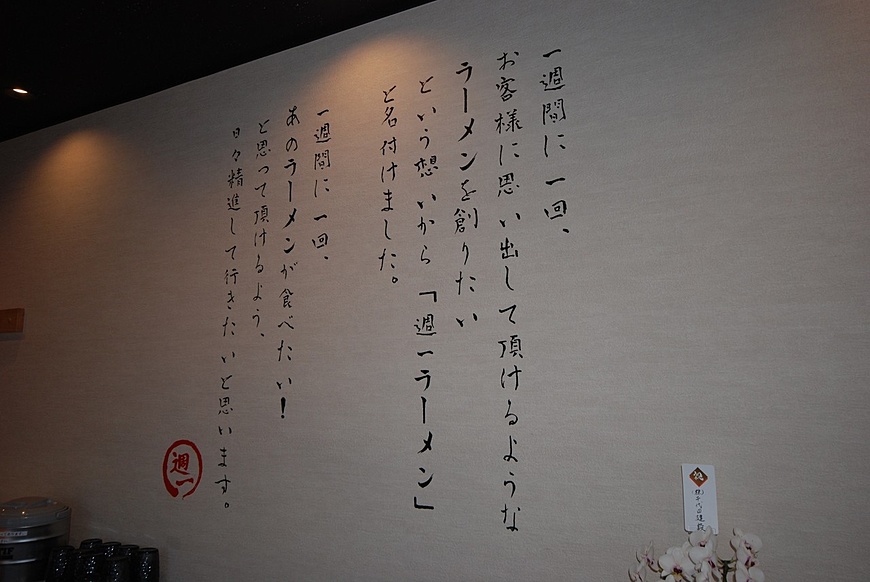 一週間に一回、
お客様に思い出して頂けるような
ラーメンを創りたい
という想いから「週一ラーメン」
と名付けました。
一週間に一回、
あのラーメンが食べたい！
と思って頂けるよう、
日々精進して行きたいと思います。
週一
祝